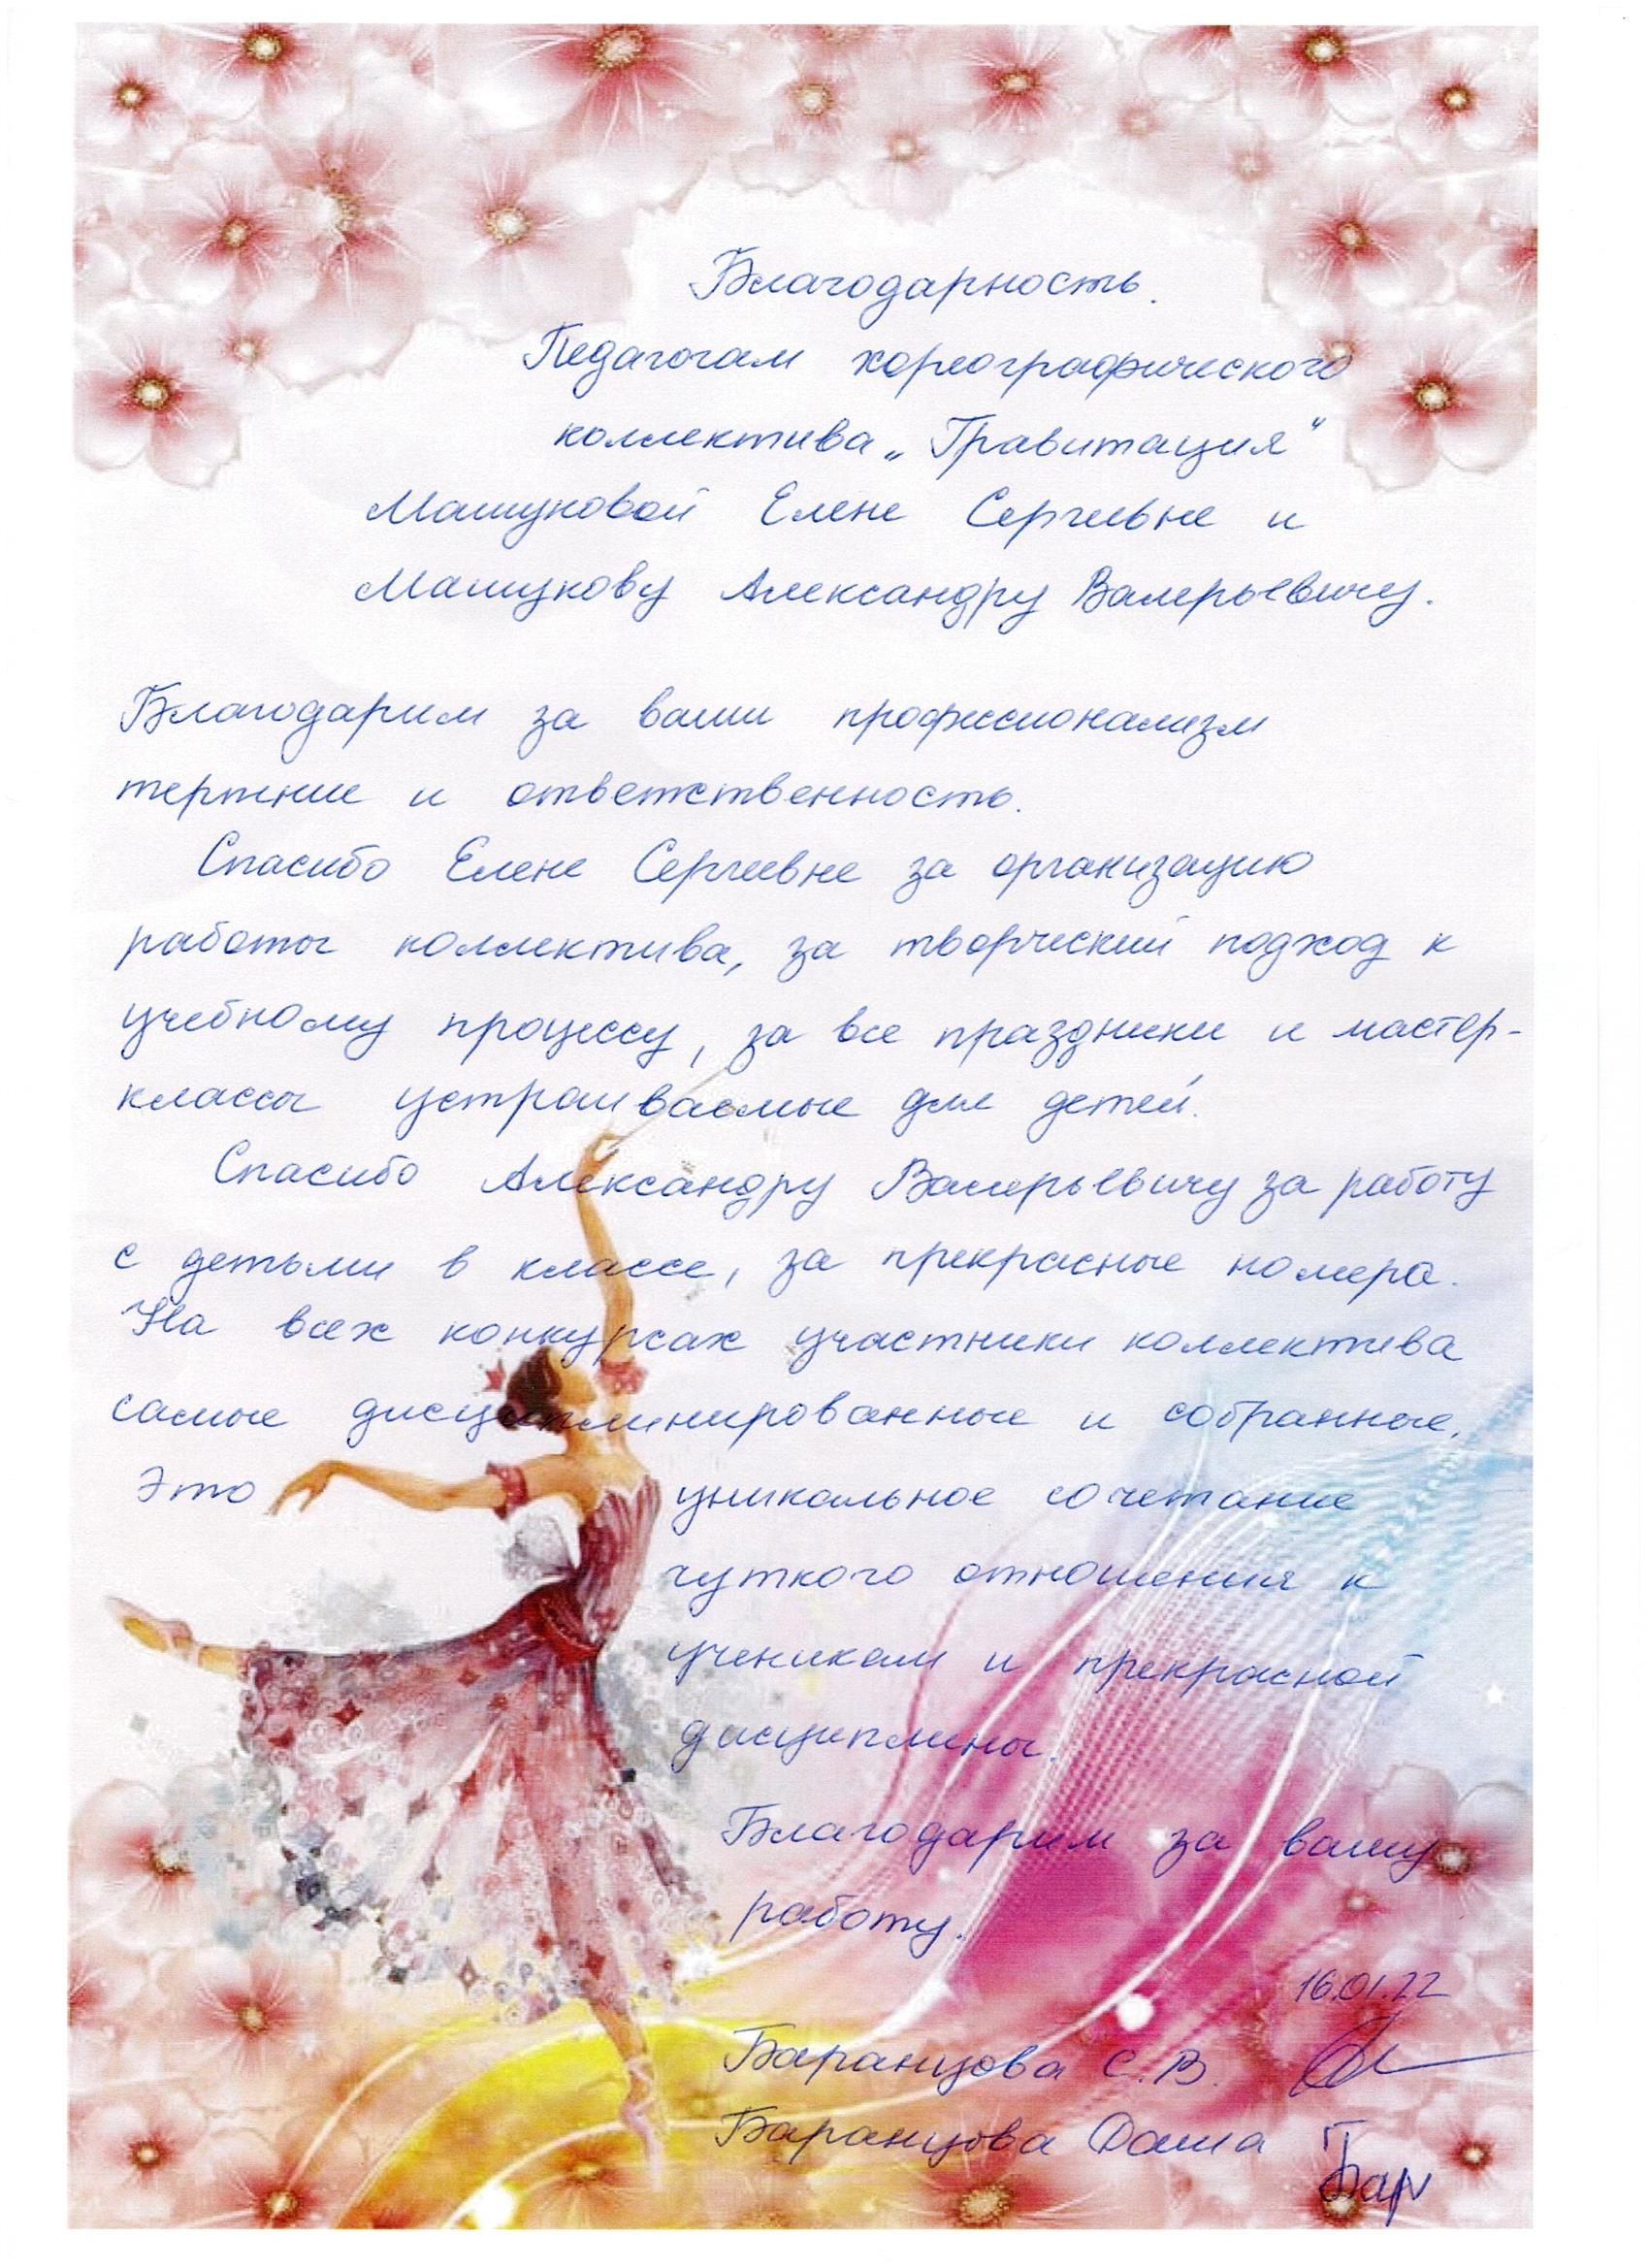 Благодарность.
Педагогам хореографического
коллектива „Гравитация"
Машуковой Елене Сергеевне и
Машукову Александру Валерьевичу.
Благодарим за ваш профессионализм
терпение и ответственность.
Спасибо Елене Сергеевне за организацию
работы коллектива, за творческий подход к
учебному процессу, за все праздники и мастер-
классы устраиваемые для детей.
Спасибо Александру Валерьевичу за работу
с детьми в классе, за прекрасные номера.
На всех конкурсах участники коллектива
самые дисциплинированные и собранные.
Это уникальное сочетание
чуткого отношения к
ученикам и прекрасной
дисциплины.
Благодарим за вашу
работу.
16.01.22
Баранцова С.В.
Баранцова Даша Бар